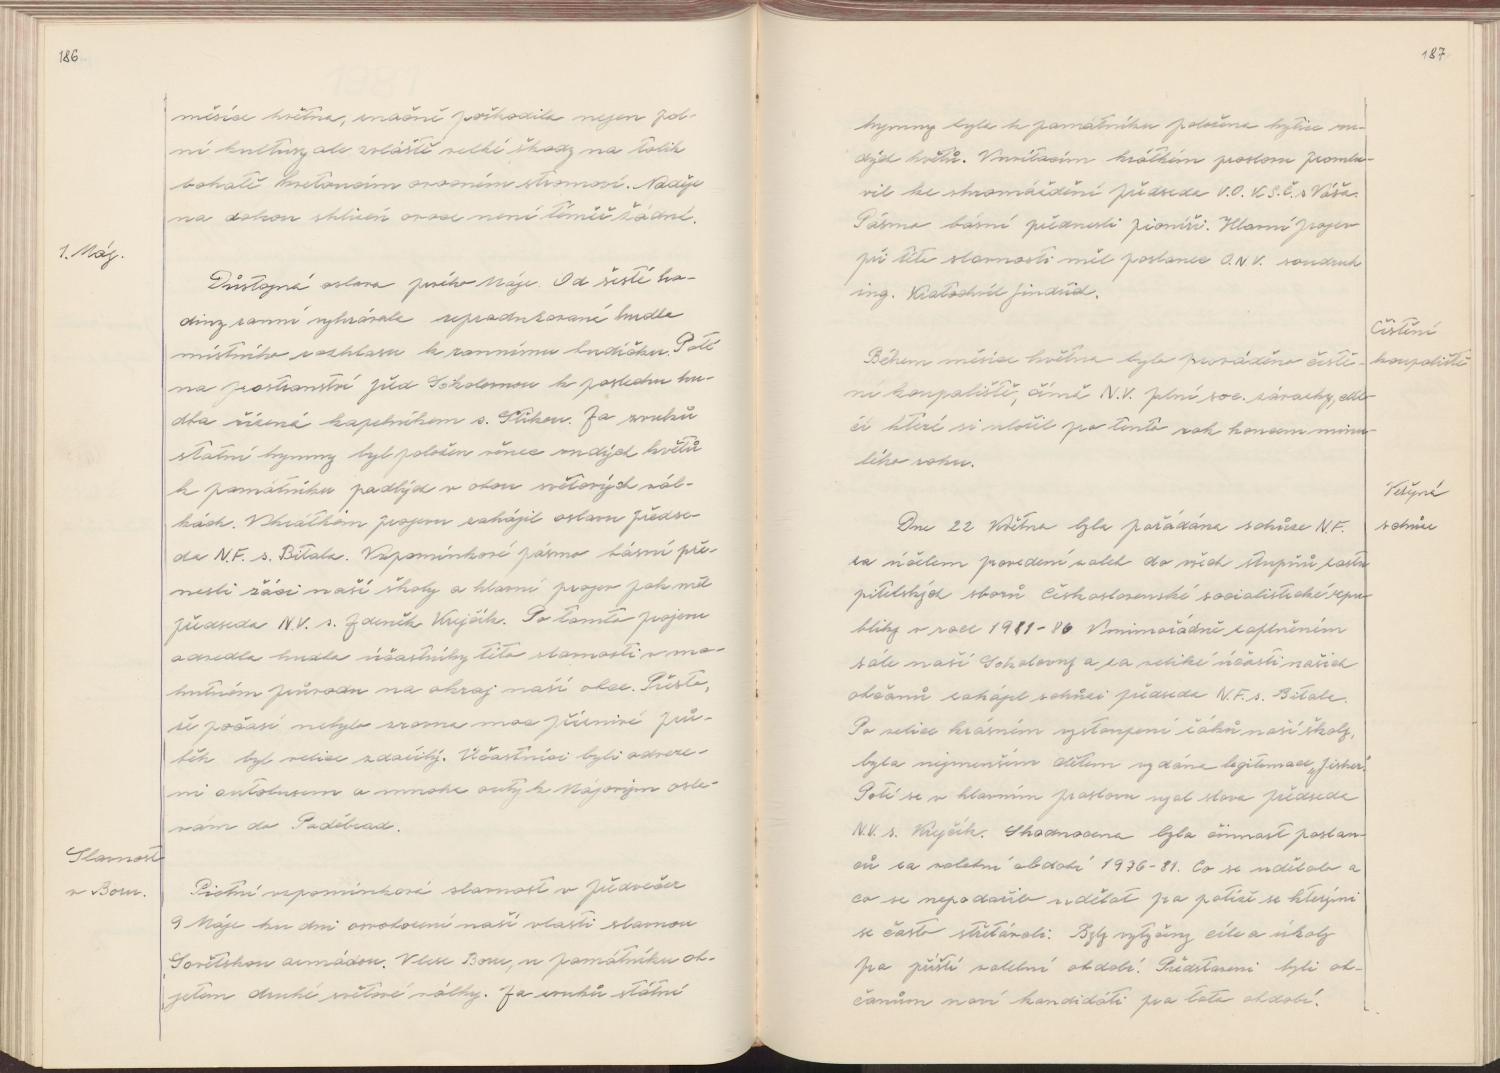 186
měsíce května, značně poškodila nejen pol-
ní kultury ale zvláště velké škody na tolik
bohatě kvetoucím ovocném stromoví. Naděje
na dobrou sklizeň ovoce není téměř žádná.
1. Máj.
Důstojná oslava prvého Máje. Od šesté ho-
diny ranní vyhrávala reprodukovaná hudba
místního rozhlasu k rannímu budíčku. Poté
na prostranství před Sokolovnou k poslechu hu-
dba řízená kapelníkem s. Za zvuků
státní hymny byl položen věnec rudých květů
k památníku padlých v obou světových vál-
kách. V krátkém projevu zahájil oslavu předse-
da N.F. s. Bitala. Vzpomínkové pásmo básní pře-
nesli žáci naší školy a hlavní projev pak měl
předseda N.V. s. Zdeněk Krejčík. Po tomto projevu
odvedla hudba účastníky této slavnosti v mo-
hutném průvodu na okraj naší obce. Přesto,
že počasí nebylo zrovna moc příznivé prů-
běh byl velice zdařilý. Účastníci byli odveze-
ni autobusem a mnoha auty k Májovým osla-
vám do Poděbrad.
Slavnost
v Boru.
Pietní vzpomínková slavnost v předvečer
9 Máje ku dni osvobození naší vlasti slavnou
Sovětskou armádou. V lese Boru, u památníku ob-
jetem druhé světové války. Za zvuků státní
187
hymny byla k památníku položena kytice ru-
dých květů. V krátkém proslovu promlu-
vil ke shromáždění předseda V.O. K.S.Č. s Váša.
Pásmo básní přednesli pionýři. Hlavní projev
při této slavnosti měl poslanec O.N.V. soudruh
ing. Kratochvíl Jindřich.
Čištění
koupaliště
Během měsíce května bylo prováděno čiště-
ní koupaliště, čímž N.V. plní soc. závazky,
které si uložil pro tento rok koncem minu-
lého roku.
Veřejná
schůze
Dne 22 Května byla pořádána schůze N.F.
za účelem provedení voleb do všech stupňů zastu
pitelských sborů Československé socialistické repu-
bliky v roce 1981-86 V mimořádně zaplněném
sále naší Sokolovny a za veliké účasti našich
občanů zahájil schůzi předseda N.F. s. Bitala.
Po velice krásném vystoupení žáků naší školy,
byla nejmenším dětem vydána legitimace „Jisker".
Poté se v hlavním proslovu ujal slova předseda
N.V. s. Krejčík. Shodnocena byla činnost poslan-
ců za volební období 1976-81. Co se udělalo a
co se nepodařilo udělat pro potíže se kterými
se často střetávali. Byly vytyčeny cíle a úkoly
pro příští volební období. Představeni byli ob-
čanům noví kandidáti pro toto období.